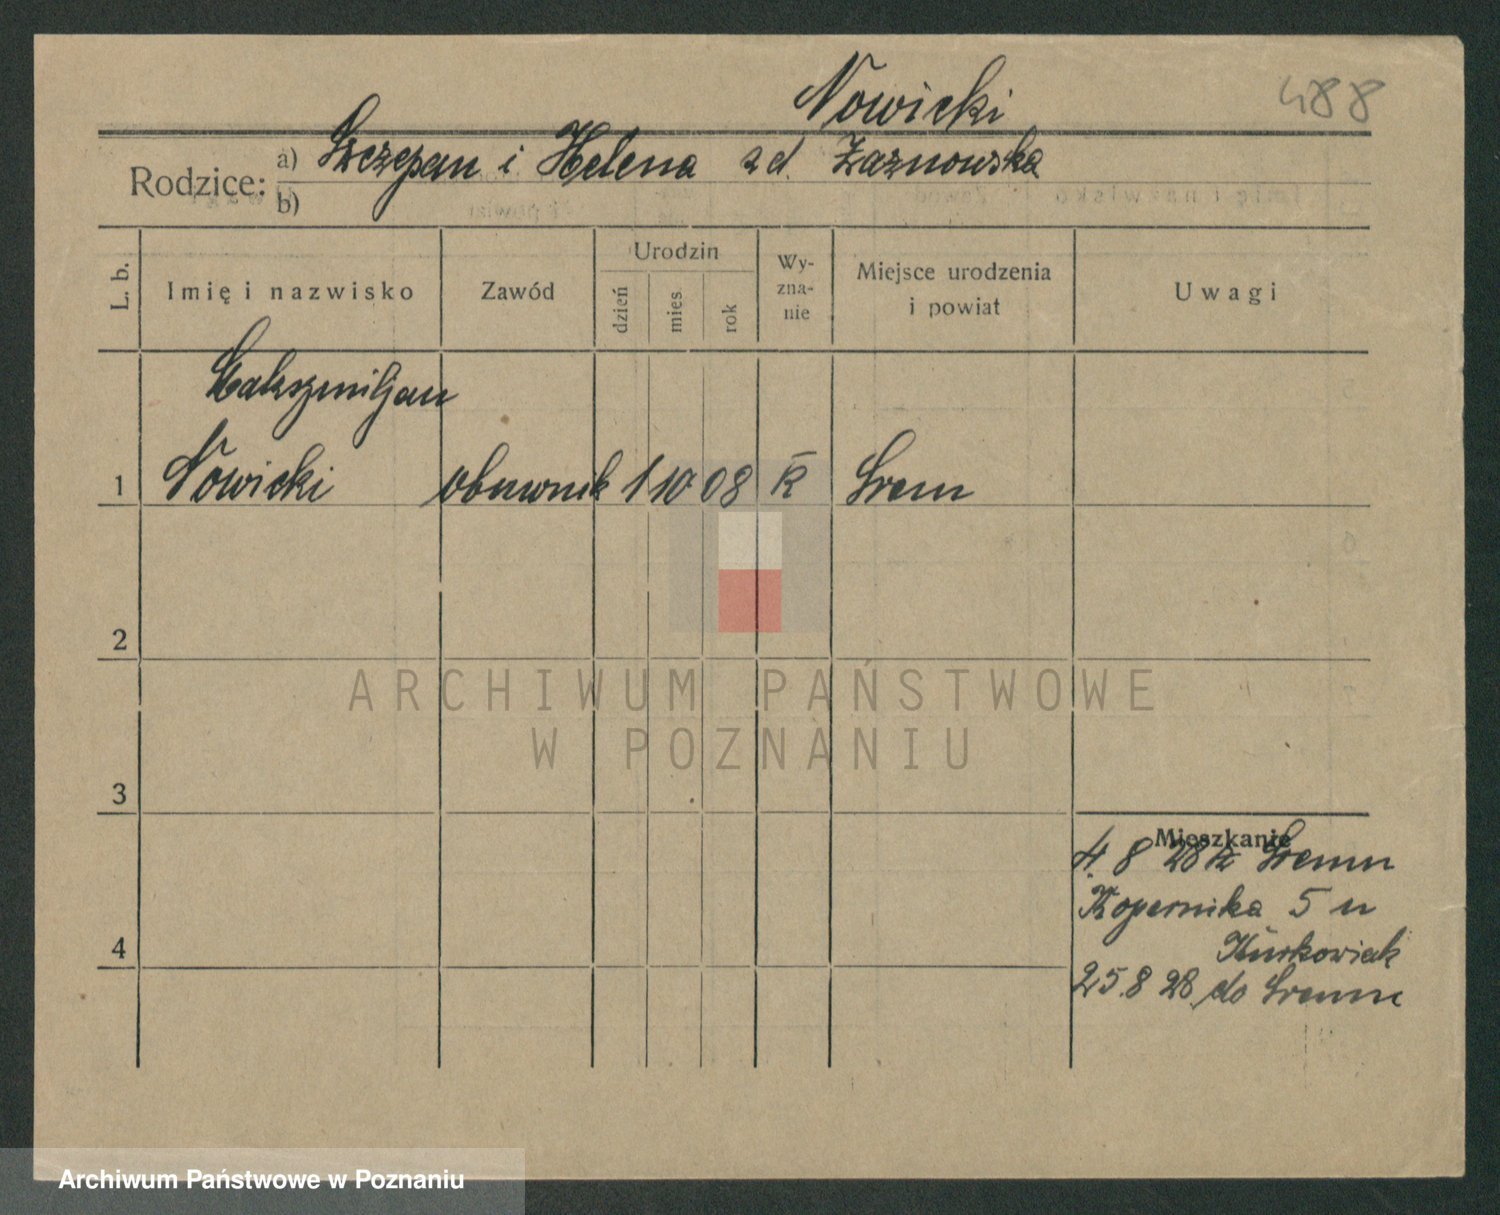 Nowicki
488
Rodzice:
a) Szczepan i Helena zd. Zaznowska
b)
L. b.
Imię i nazwisko
Zawód
Urodzin
dzień
mies
rok
Wy-
zna-
nie
Miejsce urodzenia
i powiat
Uwagi
Maksymiljan
1 Nowicki obuwnik 1 10 08 K Śrem
2
3
4
Mieszkanie
4. 8 28 z Śremu
Kopernika 5 u
Kurkowiak
25.8 28 do Śremu
ARCHIWUM PAŃSTWOWE
W POZNANIU
Archiwum Państwowe w Poznaniu